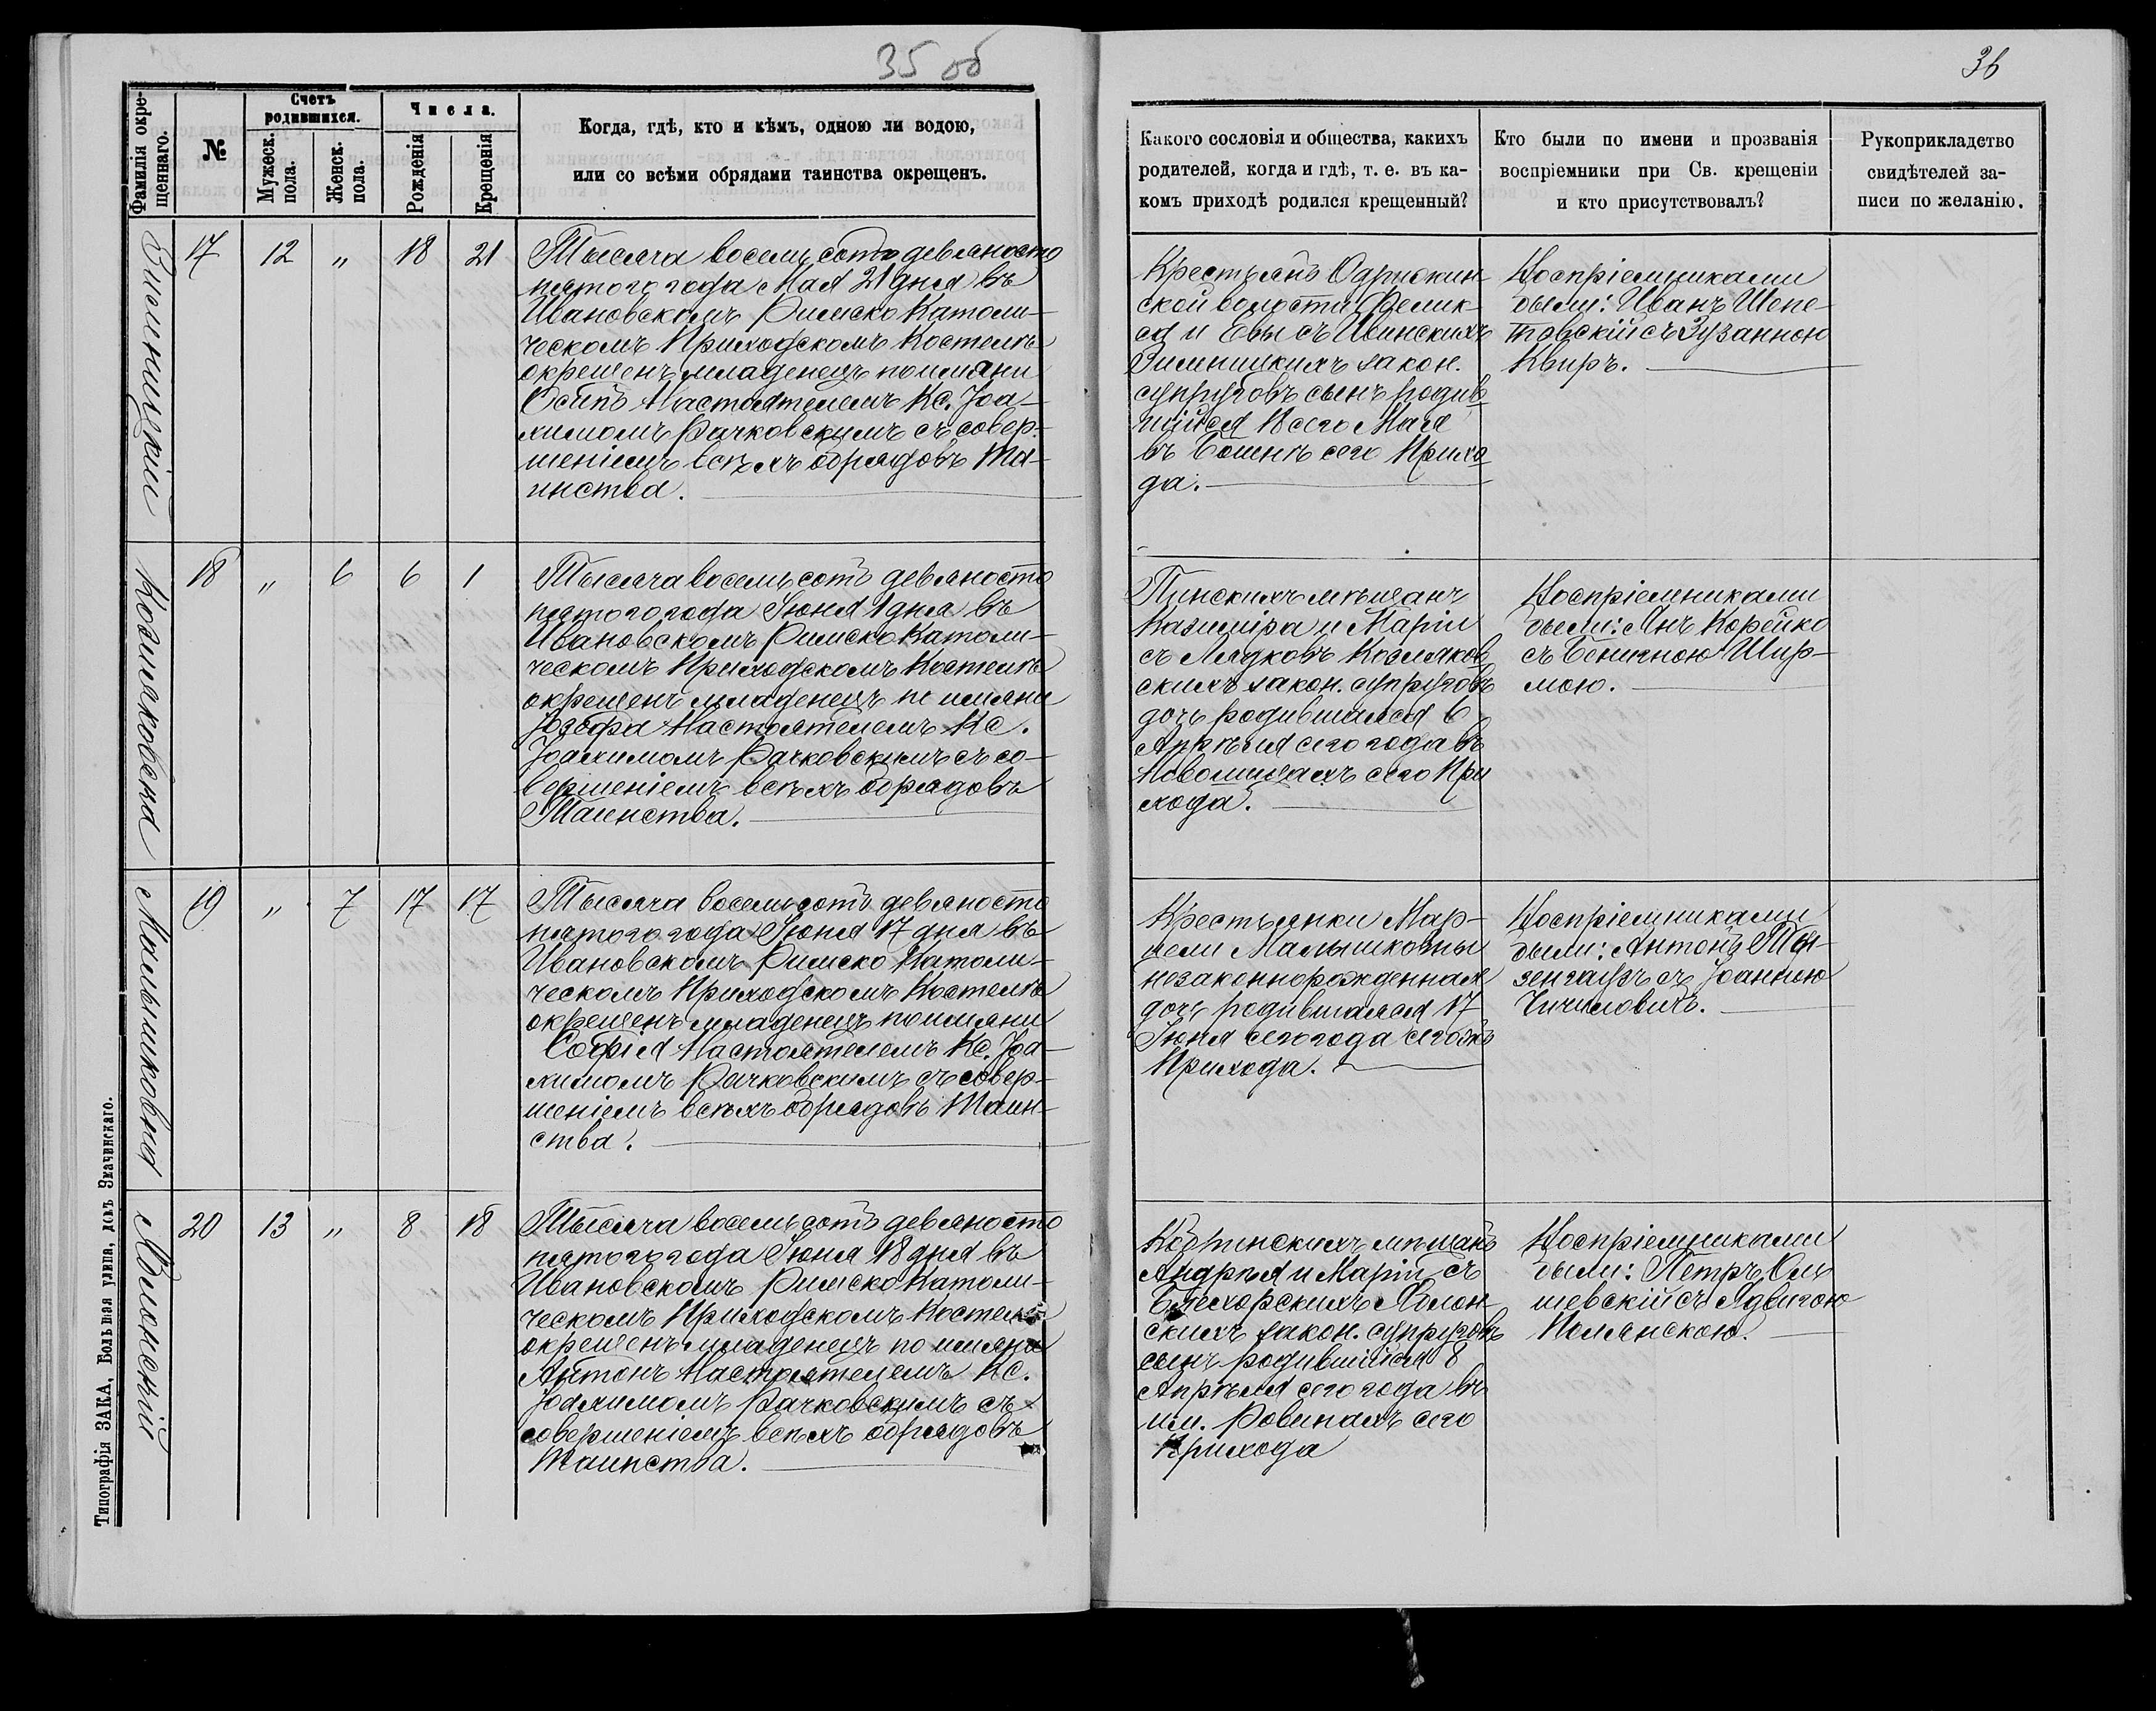 35 об
36
Фамилія окре-
щеннаго.
№
Счетъ
родившихся.
Мужеск.
пола.
Женск.
пола.
Числа.
Рожденія
Крещенія
Когда, гдѣ, кто и кѣмъ, одною ли водою,
или со всѣми обрядами таинства окрещенъ.
Какого сословія и общества, какихъ
родителей, когда и гдѣ, т. е. въ ка-
комъ приходѣ родился крещенный?
Кто были по имени и прозванія
воспріемники при Св. крещеніи
и кто присутствовалъ?
Рукоприкладство
свидѣтелей за-
писи по желанію.
Зимницкій
17
12
"
18
21
Тысяча восемь сотъ девяносто
пятого года Мая 21 дня въ
Ивановскомъ Римско Католи-
ческомъ Приходскомъ Костелѣ
окрещенъ младенецъ по имяни
Осипъ Настоятелемъ Кс. Іоа-
химомъ Рачковскимъ съ совер-
шеніемъ всѣхъ обрядовъ Та-
инства.
Крестьянъ Одрижин-
ской волости Феликс-
са и Евы съ Ивинскихъ
Зимницкихъ закон.
супруговъ сынъ родив-
шійся 18 сего Мая
въ сего Прихо-
да.
Воспріемниками
были: Иванъ Шепе-
товскій съ Зузанною
Квиръ.
Козляковска
18
"
6
6
1
Тысяча восемь сотъ девяносто
пятого года Іюня 1 дня въ
Ивановскомъ Римско Католи-
ческомъ Приходскомъ Костелѣ
окрещенъ младенецъ по имяни
Іозефа Настоятелемъ Кс.
Іоахимомъ Рачковскимъ съ со-
вершеніемъ всѣхъ обрядовъ
Таинства.
Пинскихъ мѣщанъ
Казиміра и Маріи
съ Лядковъ Козляков-
скихъ закон. супруговъ
дочь родившаяся 6
Апрѣля сего года въ
сего При
хода.
Воспріемниками
были: Янъ Корейко
съ Шир-
мою.
Малышковна
19
"
7
17
17
Тысяча восемь сотъ девяносто
пятого года Іюня 17 дня въ
Ивановскомъ Римско Католи-
ческомъ Приходскомъ Костелѣ
окрещенъ младенецъ по имяни
Софія Настоятелемъ Кс. Іоа-
химомъ Рачковскимъ съ совер-
шеніемъ всѣхъ обрядовъ Таин-
ства.
Крестьянки Мар-
цели Малышковны
незаконнорожденная
дочь родившаяся 17
Іюня сего года сего жъ
Прихода.
Воспріемниками
были: Антонъ Ты-
зенгаузъ съ Іоанною
Чичиловичъ.
Яблонскій
20
13
"
8
18
Тысяча восемь сотъ девяносто
пятого года Іюня 18 дня въ
Ивановскомъ Римско Католи-
ческомъ Приходскомъ Костелѣ
окрещенъ младенецъ по имяни
Антонъ Настоятелемъ Кс.
Іоахимомъ Рачковскимъ съ
совершеніемъ всѣхъ обрядовъ
Таинства.
Кобринскихъ мѣщанъ
Андрея и Маріи съ
Яблон-
скихъ закон. супруговъ
сынъ родившійся 8
Апрѣля сего года въ
им. Ровинахъ сего
Прихода
Воспріемниками
были: Петръ Оль
шевскій съ Ядвигою
Полянскою.
Типографія ЗАКА, Большая улица, домъ Значинскаго.